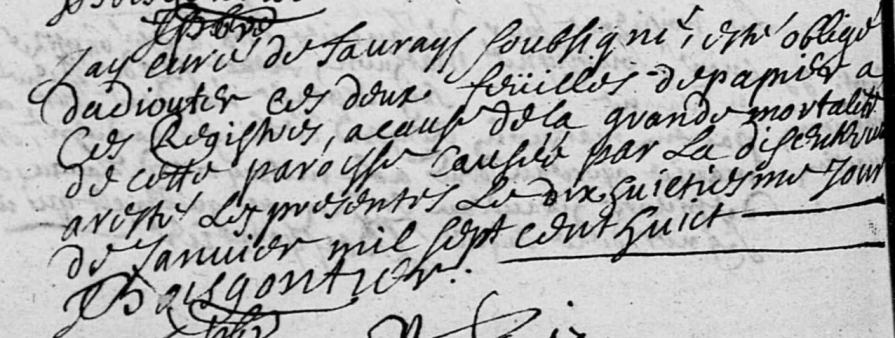 Jay curé de Taurays soubsigné, esté obligé
dadiouter ces deux feüilles de papier a
ces Registres, a cause de la grande mortalité
de cette paroisse causée par la disenterie
aresté les presentes le dix huictiesme Jour
de Janvier mil sept cent huict
JBoisgontier.